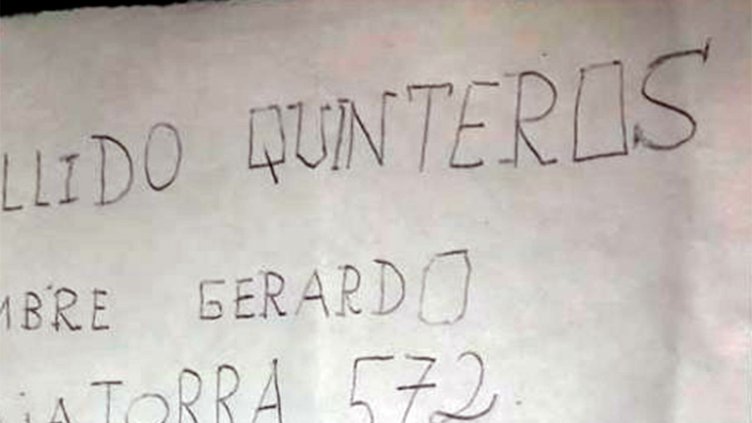 LLIDO QUINTEROS
MBRE GERARDO
TORRA 572